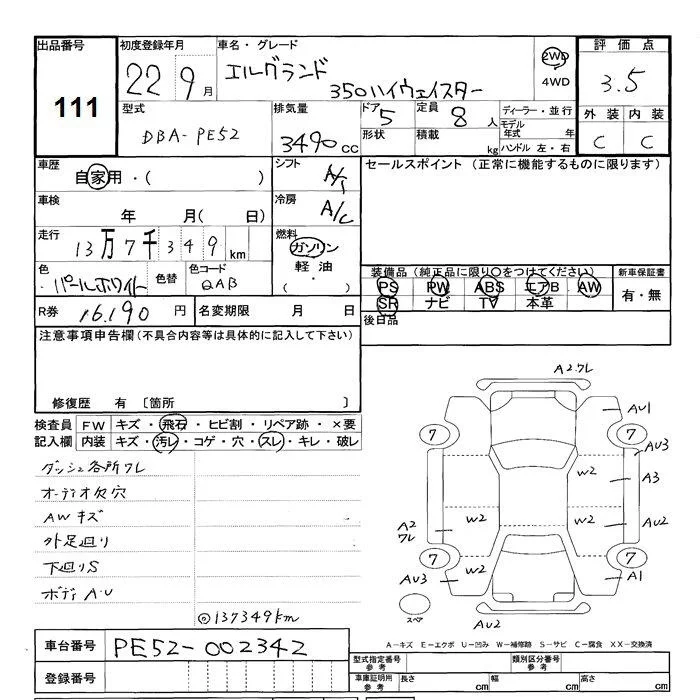 出品番号
111
初度登録年月
22 9月
車名・グレード
エルグランド
350ハイウェイスター
2WD
4WD
評価点
3.5
外装 内装
C C
型式
DBA-PE52
排気量
3490cc
ドア 5
形状
定員 8人
積載 kg
ディーラー・並行
モデル年式 年
ハンドル 左・右
車歴
自家用・( )
シフト
A/T
セールスポイント(正常に機能するものに限ります)
車検
年 月( 日)
冷房
A/C
走行
13万7千349km
燃料
ガソリン
軽油
( ・ )
色
パールホワイト
色替
色コード
QAB
装備品(純正品に限り○をつけてください)
PS PW ABS エアB AW
SR ナビ TV 本革
新車保証書
有・無
R券 16.190円
名変期限 月 日
後日品
注意事項申告欄(不具合内容等は具体的に記入して下さい)
修復歴 有 〔箇所 〕
検査員
記入欄
FW キズ・飛石・ヒビ割・リペア跡・×要
内装 キズ・汚レ・コゲ・穴・スレ・キレ・破レ
ダッシュ各所ワレ
オーディオ欠穴
AWキズ
外足廻り
下廻りS
ボディA・U
◎137349km
A2ワレ
AU1
7 7
AU3
W2 A3
W2 W2 AU2
A2
ワレ
7 7
AU3 W2 A1
スペア
AU2
A-キズ E-エクボ U-凹み W-補修跡 S-サビ C-腐食 XX-交換済
車台番号 PE52-002342
登録番号
型式指定番号
参考
類別区分番号
参考
車庫証明用
参考
長さ cm 幅 cm 高さ cm